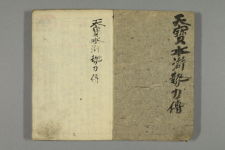 天寶水滸勢力傳
天寶水滸勢力傳